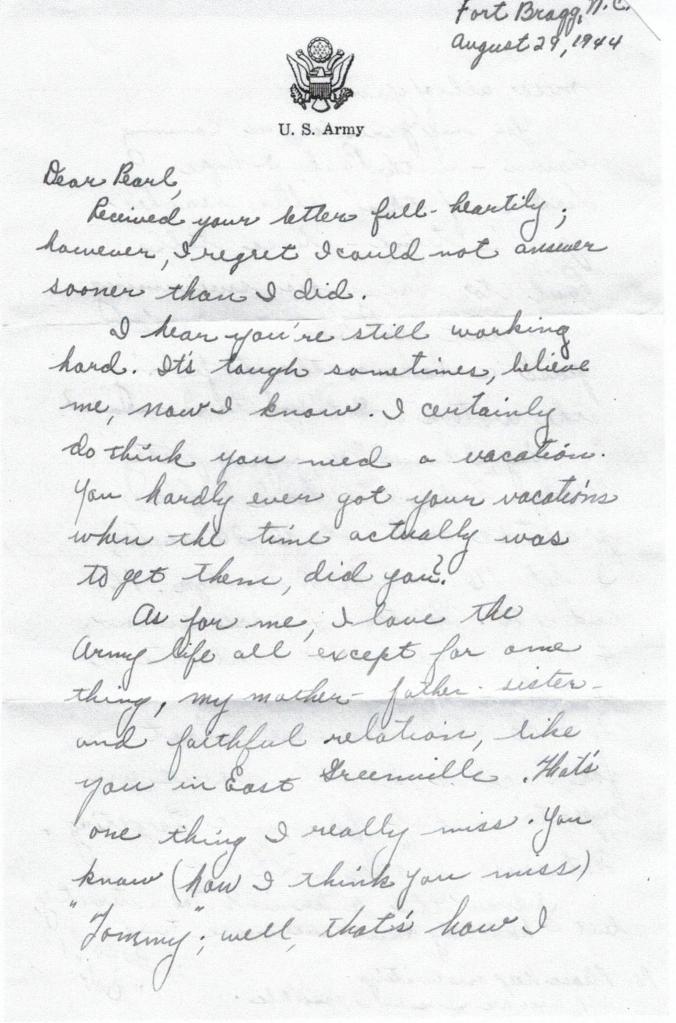 Fort Bragg, N.C.
August 29, 1944
U. S. Army
Dear Pearl,
Received your letter full-heartily;
however, I regret I could not answer
sooner than I did.
I hear you're still working
hard. It's tough sometimes, believe
me, now I know. I certainly
do think you need a vacation.
You hardly ever got your vacations
when the time actually was
to get them, did you?
As for me, I love the
Army life all except for one
thing, my mother - father - sister -
and faithful relation, like
you in East Greenville. That's
one thing I really miss. You
know (how I think you miss)
"Tommy"; well, that's how I